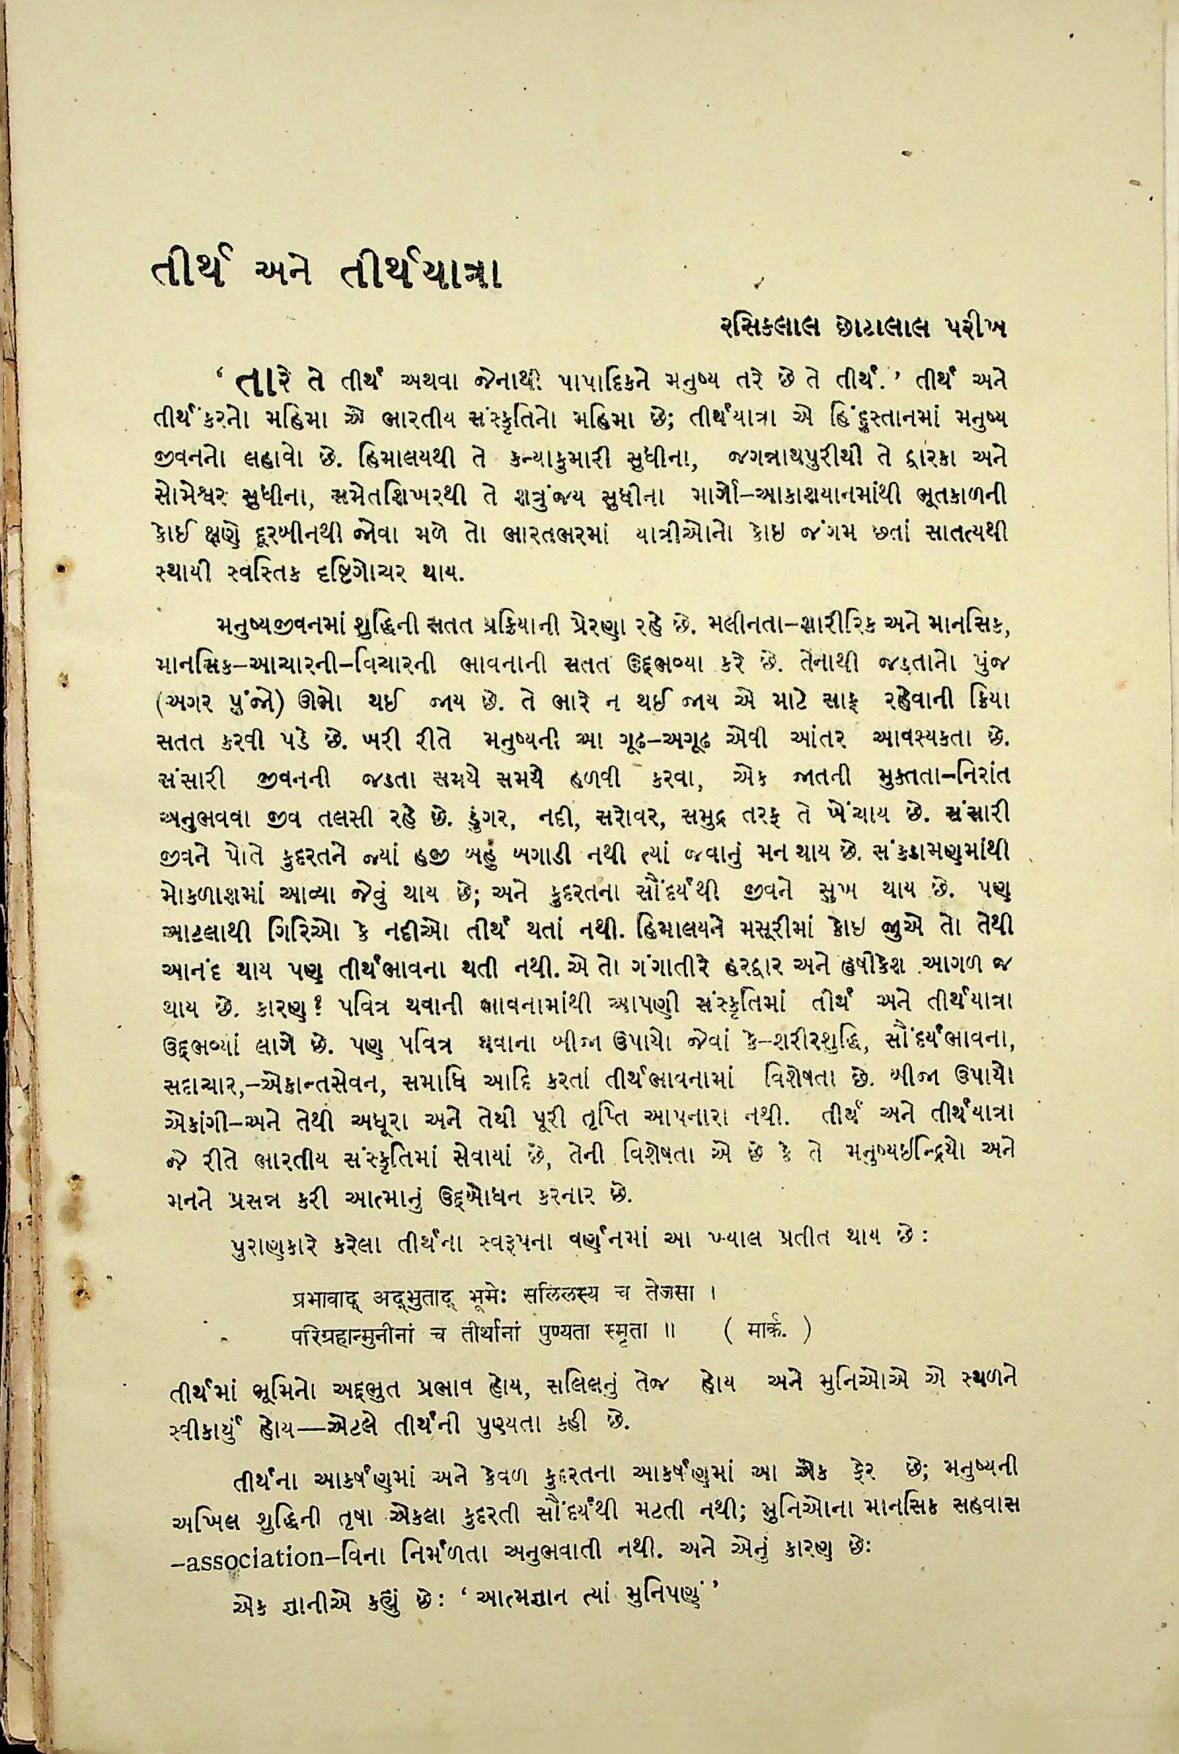 તીર્થ અને તીર્થયાત્રા
રસિકલાલ છોટાલાલ પરીખ
‘ તારે તે તીર્થ અથવા જેનાથી પાપાદિકને મનુષ્ય તરે છે તે તીર્થ. ’ તીર્થ અને
તીર્થંકરનો મહિમા એ ભારતીય સંસ્કૃતિનો મહિમા છે; તીર્થયાત્રા એ હિંદુસ્તાનમાં મનુષ્ય
જીવનનો લહાવો છે. હિમાલયથી તે કન્યાકુમારી સુધીના, જગન્નાથપુરીથી તે દ્વારકા અને
સોમેશ્વર સુધીના, સમેતશિખરથી તે શત્રુંજય સુધીના માર્ગો–આકાશયાનમાંથી ભૂતકાળની
કોઈ ક્ષણે દૂરબીનથી જોવા મળે તો ભારતભરમાં યાત્રીઓનો કોઇ જંગમ છતાં સાતત્યથી
સ્થાયી સ્વસ્તિક દૃષ્ટિગોચર થાય.
મનુષ્યજીવનમાં શુદ્ધિની સતત પ્રક્રિયાની પ્રેરણા રહે છે. મલીનતા–શારીરિક અને માનસિક,
માનસિક–આચારની–વિચારની ભાવનાની સતત ઉદ્દભવ્યા કરે છે. તેનાથી જડતાનો પુંજ
(અગર પુંજો) ઊભો થઈ જાય છે. તે ભારે ન થઈ જાય એ માટે સાફ રહેવાની ક્રિયા
સતત કરવી પડે છે. ખરી રીતે મનુષ્યની આ ગૂઢ–અગૂઢ એવી આંતર આવશ્યકતા છે.
સંસારી જીવનની જડતા સમયે સમયે હળવી કરવા, એક જાતની મુક્તતા–નિરાંત
અનુભવવા જીવ તલસી રહે છે. ડુંગર, નદી, સરોવર, સમુદ્ર તરફ તે ખેંચાય છે. સંસારી
જીવને પોતે કુદરતને જ્યાં હજી બહુ બગાડી નથી ત્યાં જવાનું મન થાય છે. સંકડામણમાંથી
મોકળાશમાં આવ્યા જેવું થાય છે; અને કુદરતના સૌંદર્યથી જીવને સુખ થાય છે. પણ
આટલાથી ગિરિઓ કે નદીઓ તીર્થ થતાં નથી. હિમાલયને મસૂરીમાં કોઇ જુએ તો તેથી
આનંદ થાય પણ તીર્થભાવના થતી નથી. એ તો ગંગાતીરે હરદ્વાર અને હૃષીકેશ આગળ જ
થાય છે. કારણ? પવિત્ર થવાની ભાવનામાંથી આપણી સંસ્કૃતિમાં તીર્થ અને તીર્થયાત્રા
ઉદ્દભવ્યાં લાગે છે. પણ પવિત્ર થવાના બીજા ઉપાયો જેવાં કે–શરીરશુદ્ધિ, સૌંદર્યભાવના,
સદાચાર,–એકાન્તસેવન, સમાધિ આદિ કરતાં તીર્થભાવનામાં વિશેષતા છે. બીજા ઉપાયો
એકાંગી–અને તેથી અધૂરા અને તેથી પૂરી તૃપ્તિ આપનારા નથી. તીર્થ અને તીર્થયાત્રા
જે રીતે ભારતીય સંસ્કૃતિમાં સેવાયાં છે, તેની વિશેષતા એ છે કે તે મનુષ્યઇન્દ્રિયો અને
મનને પ્રસન્ન કરી આત્માનું ઉદ્દબોધન કરનાર છે.
પુરાણકારે કરેલા તીર્થના સ્વરૂપના વર્ણનમાં આ ખ્યાલ પ્રતીત થાય છે :
प्रभावाद् अद्भुताद् भूमेः सलिलस्य च तेजसा ।
परिग्रहान्मुनीनां च तीर्थानां पुण्यता स्मृता ॥ ( मार्क. )
તીર્થમાં ભૂમિનો અદ્દભુત પ્રભાવ હોય, સલિલનું તેજ હોય અને મુનિઓએ એ સ્થળને
સ્વીકાર્યું હોય—એટલે તીર્થની પુણ્યતા કહી છે.
તીર્થના આકર્ષણમાં અને કેવળ કુદરતના આકર્ષણમાં આ એક ફેર છે; મનુષ્યની
અખિલ શુદ્ધિની તૃષા એકલા કુદરતી સૌંદર્યથી મટતી નથી; મુનિઓના માનસિક સહવાસ
–association–વિના નિર્મળતા અનુભવાતી નથી. અને એનું કારણ છેઃ
એક જ્ઞાનીએ કહ્યું છેઃ ‘ આત્મજ્ઞાન ત્યાં મુનિપણું ’